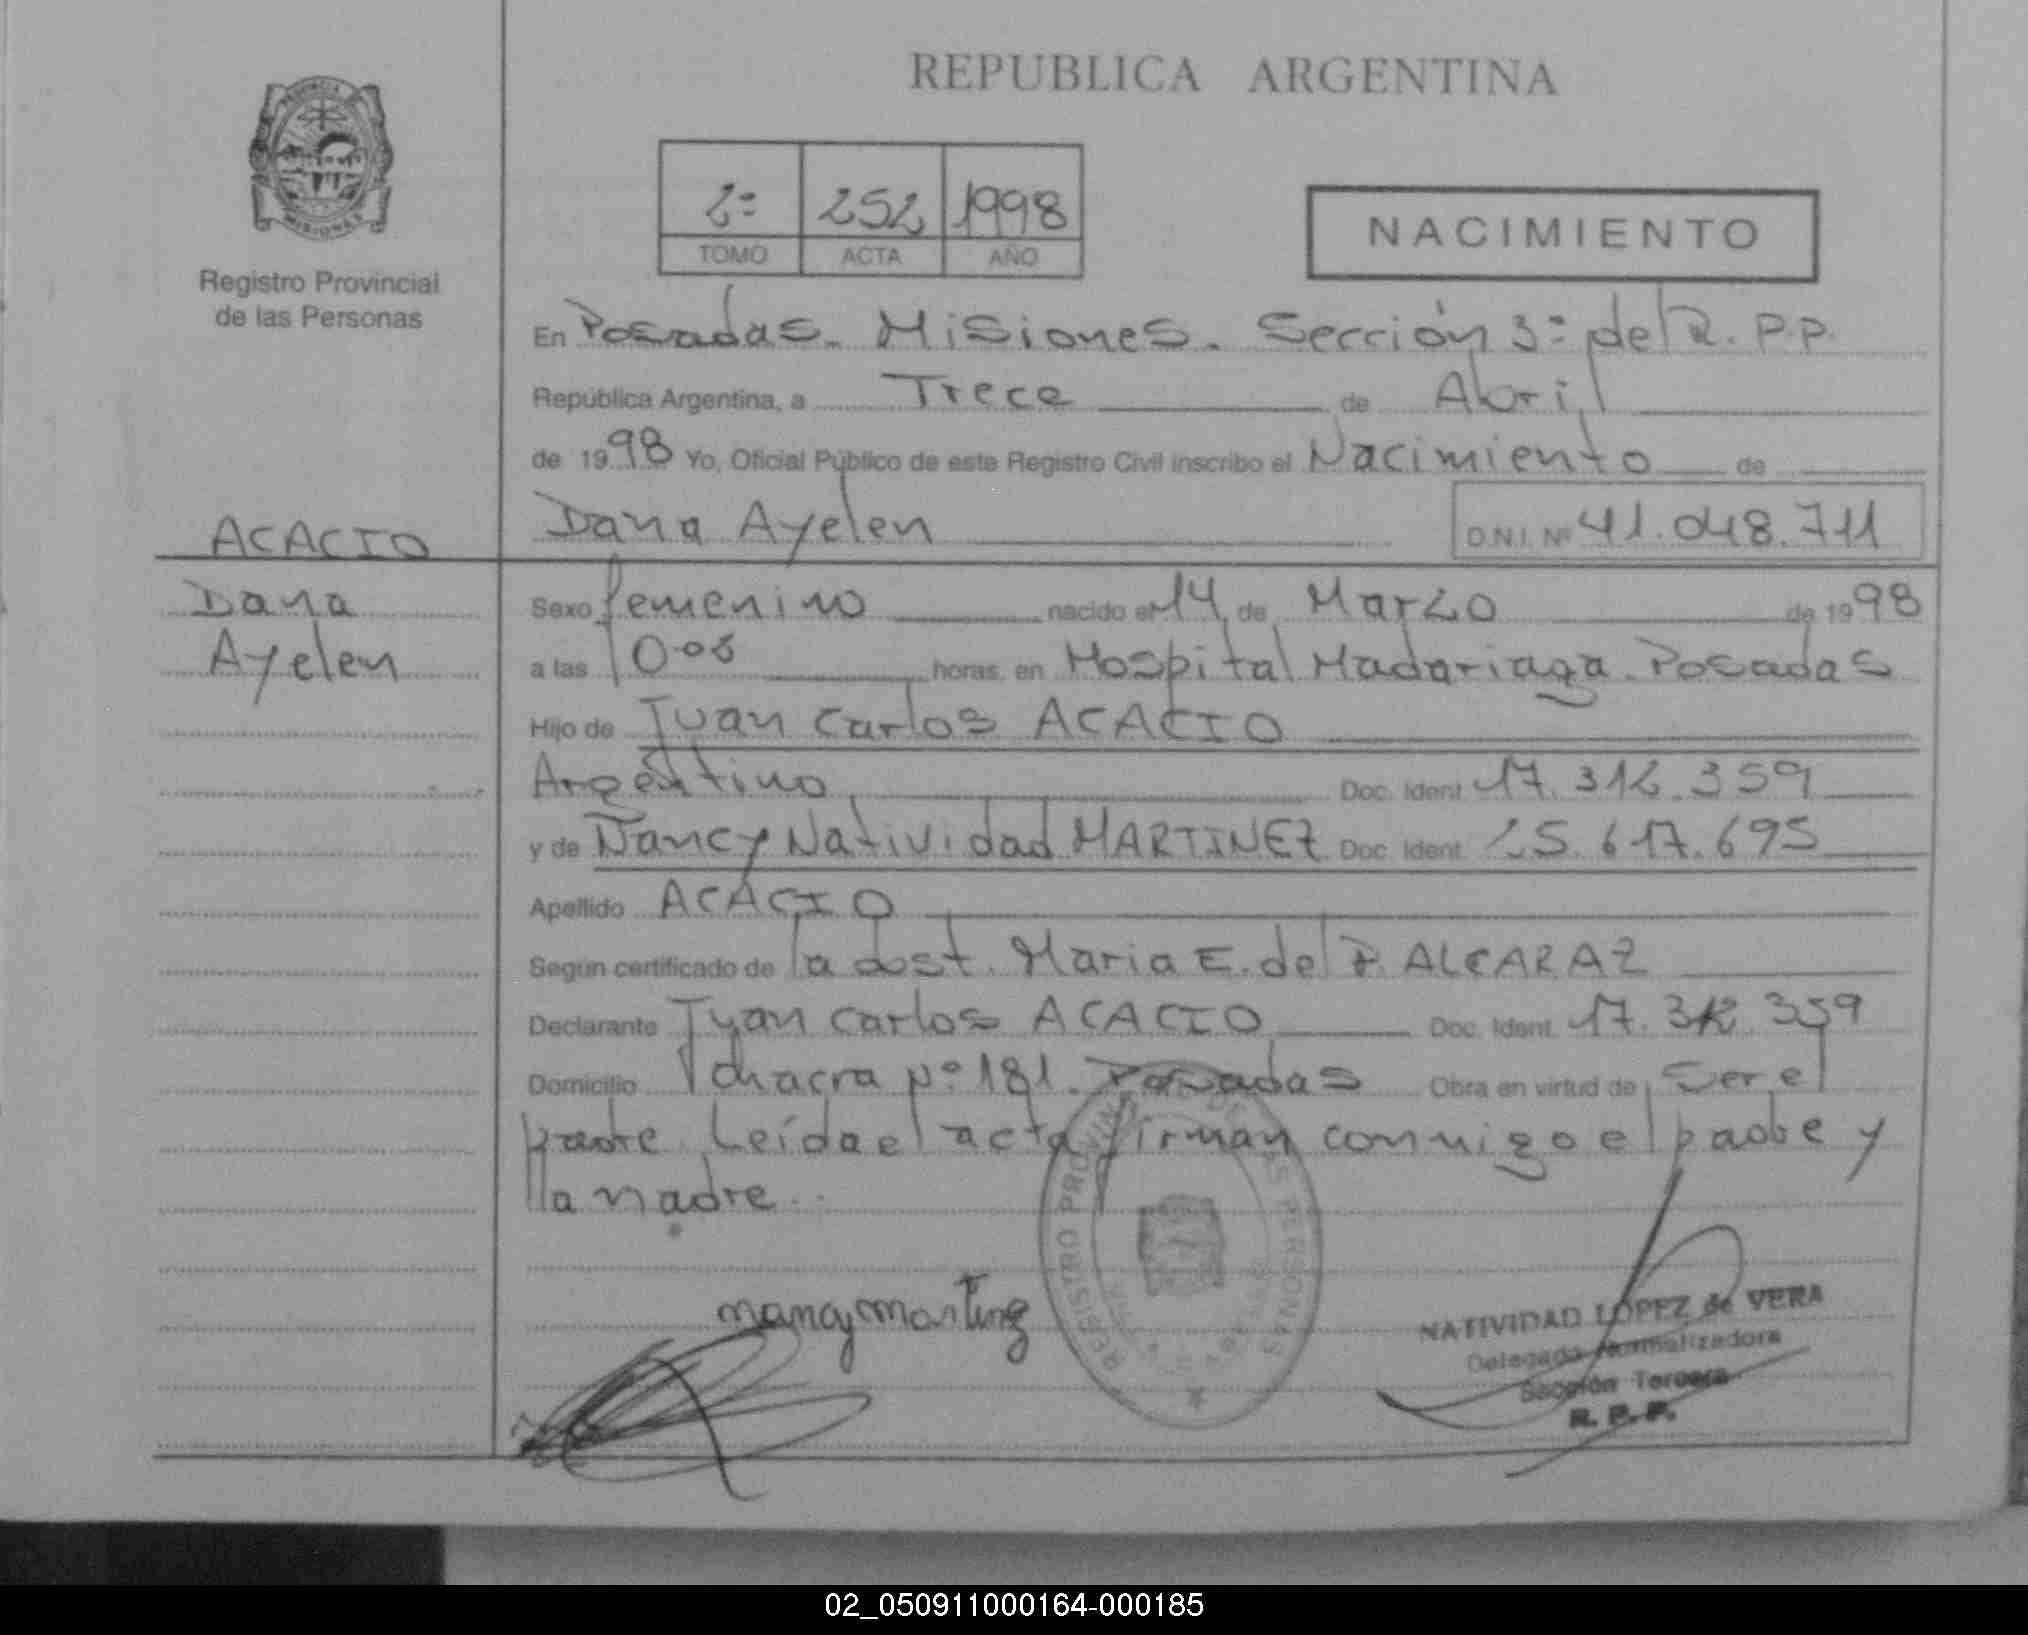 REPUBLICA ARGENTINA
PROVINCIA
MISIONES
Registro Provincial
de las Personas
2º 252 1998
TOMO ACTA AÑO
NACIMIENTO
En Posadas. Misiones. Sección 3º del R.P.P.
República Argentina, a Trece de Abril
de 1998 Yo, Oficial Público de este Registro Civil inscribo el Nacimiento de
Dana Ayelen D.N.I. Nº 41.048.711
ACACIO
Dana
Ayelen
Sexo femenino nacido el 14 de Marzo de 1998
a las 10.08 horas, en Hospital Madariaga. Posadas
Hijo de Juan Carlos ACACIO
Argentino Doc. Ident. 17.312.359
y de Nancy Natividad MARTINEZ Doc. Ident. 25.617.695
Apellido ACACIO
Según certificado de la obst. Maria E. del P. ALCARAZ
Declarante Juan Carlos ACACIO Doc. Ident. 17.312.359
Domicilio chacra Nº 181. Posadas Obra en virtud de Ser el
padre. Leída el acta firman conmigo el padre y
la madre.
REGISTRO PROVINCIAL DE LAS PERSONAS
nancy martinez
NATIVIDAD LOPEZ de VERA
Delegada Normalizadora
Sección Tercera
R. P. P.
02_050911000164-000185